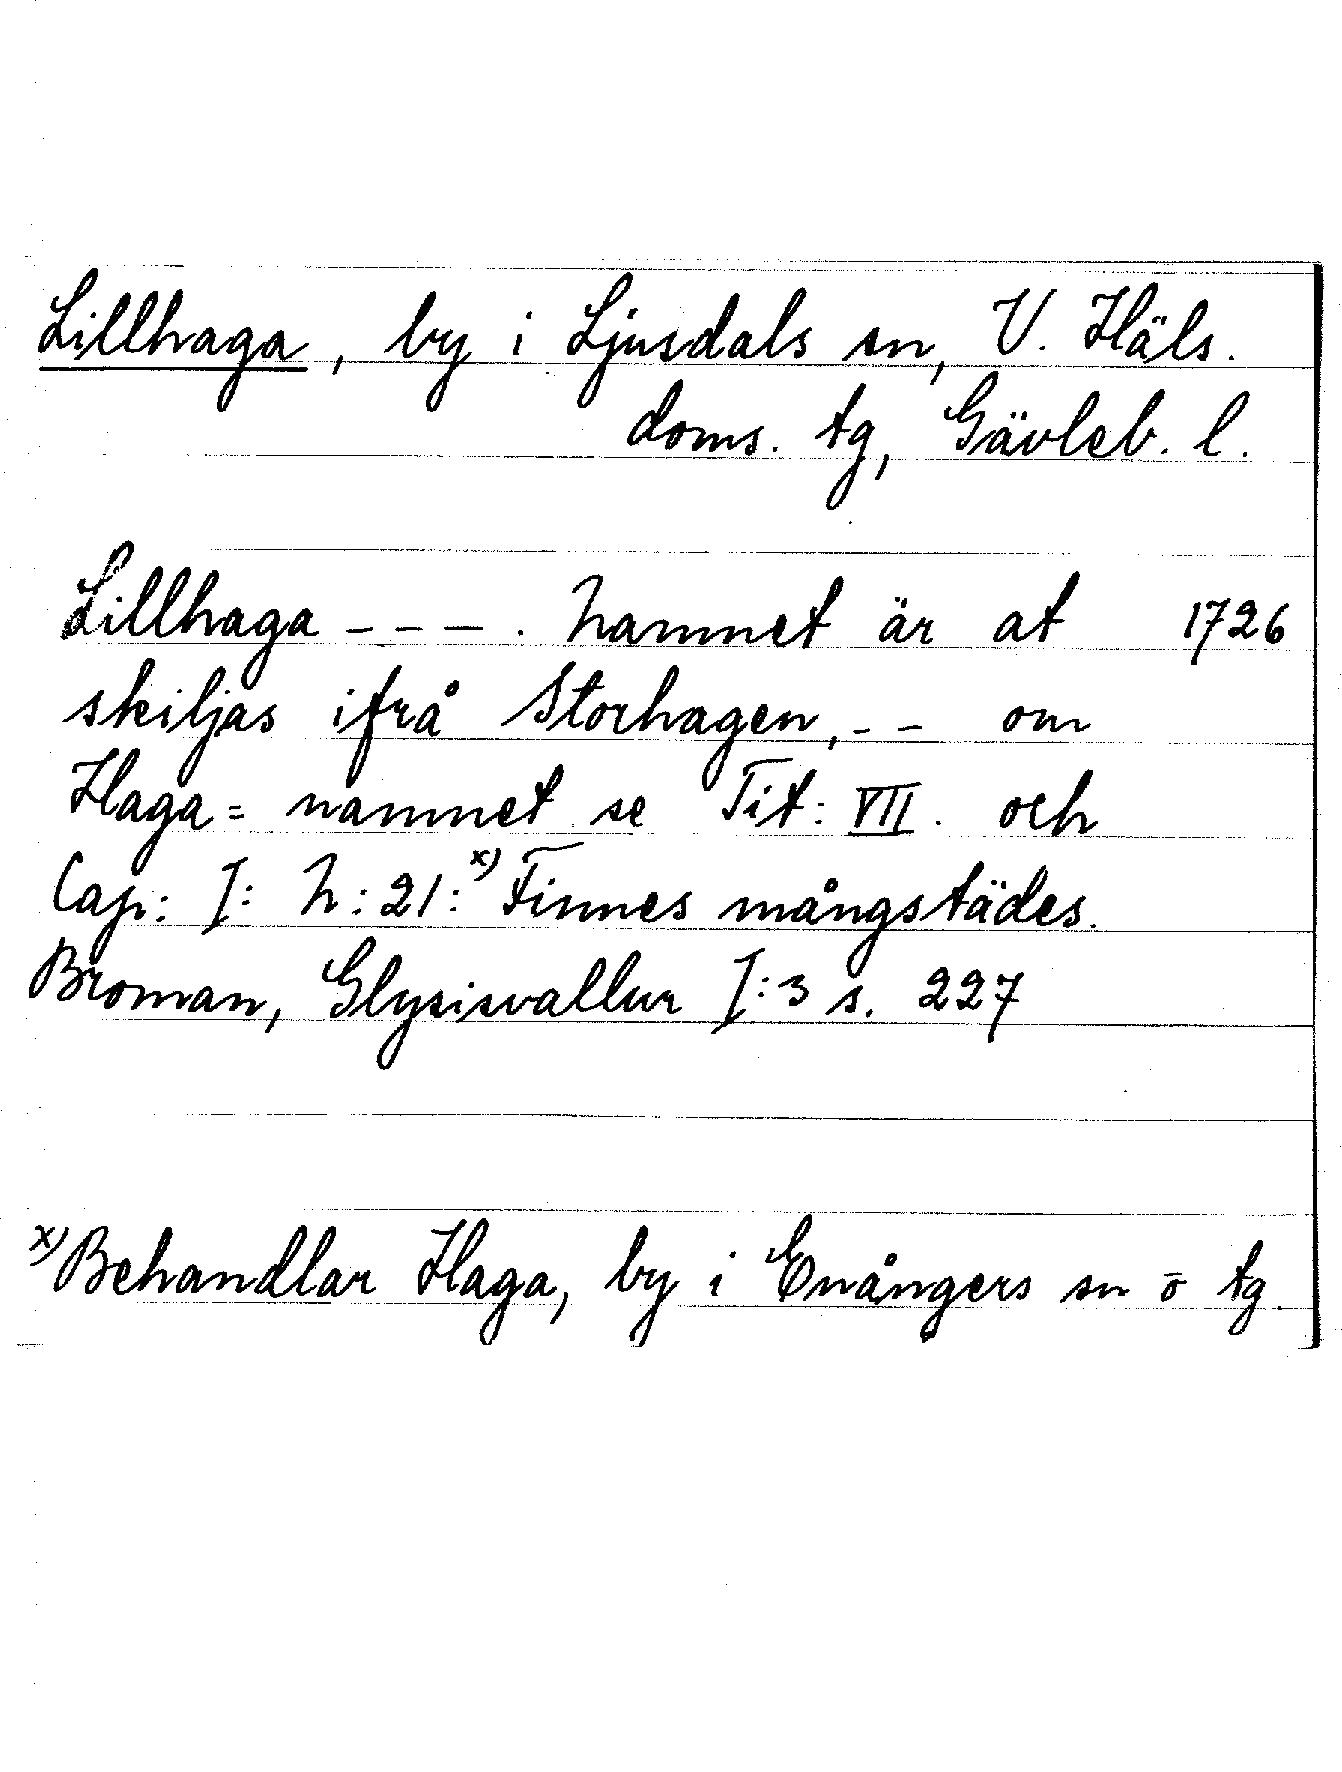 Lillhaga, by i Ljusdals sn, V. Häls.
doms. tg, Gävleb. l.
Lillhaga - - - . Namnet är at 1726
skiljas ifrå Storhagen, - - om
Haga= namnet se Tit: VII. och
Cap: I: N: 21: x) Finnes mångstädes.
Broman, Glysisvallur I:3 s. 227
x) Behandlar Haga, by i Enångers sn o tg.